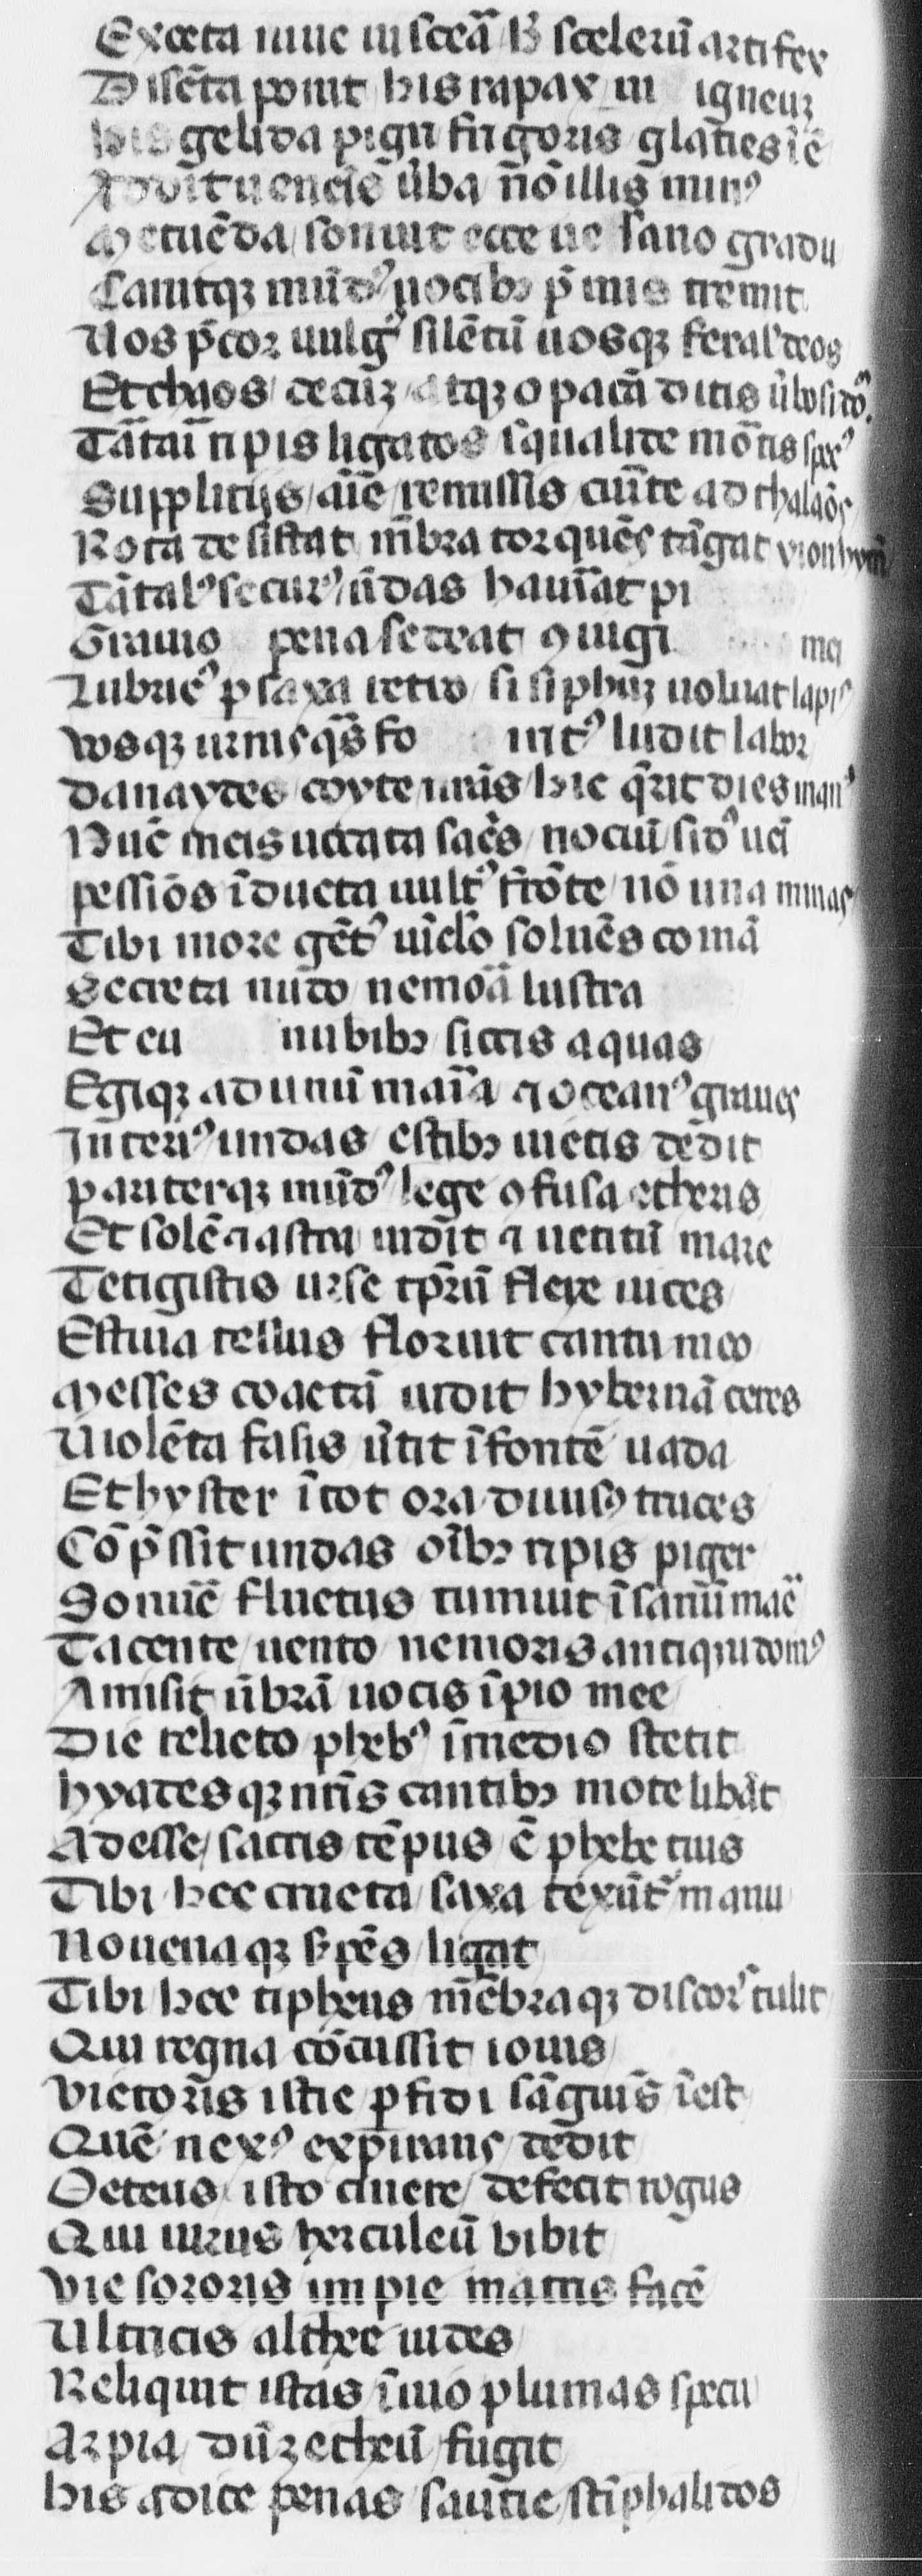 Execta uiue uisceã h̃ scelerũ artifex
Discẽta ponit his rapax ui igneuz
his gelida pigri frigoris glacies iẽ
Addit uenenis ũba nõ illis minꝰ
Metuẽda sonuit ecce ue sano gradu
Canitqꝫ mũdꝰ uocibꝫ p̃mis tremit
Uos p̃cor uulgꝰ silẽtũ uosqꝫ feral' deos
Et chaos cecuꝫ atqꝫ opacã ditis
Tãtari ripis ligatos squalide mõtis specꝰ
Suppliciis aĩe remissis currite ad thalaõs
Rota resistat mẽbra torquẽs tãgat
Tãtalꝰ securꝰ ũdas hauriat pi
Grauio pena sedeat ꝯiugi mei
Lubricꝰ p saxa retro sisiphuꝫ uoluat lapis
vosqꝫ urnis qͣs fo iritꝰ ludit labor
danaydes coyte uras hic q̃rit dies manꝰ
Nũc meis uocata sacris noctiũ sidꝰ ueni
pessĩos iducta uultꝰ frõte nõ una minas
Tibi more gẽtꝰ uĩclo soluẽs comã
Secreta nudo nemora lustra
Et eu nubibꝫ siccis aquas
Egiqꝫ ad unũ maria ⁊ oceanꝰ graues
Interiꝰ undas estibꝫ uictis dedit
pariterqꝫ mũdꝰ lege ꝯfusa etheris
Et solẽ ⁊ astra uidit ⁊ uetitũ mare
Tetigistis urse tp̃rũ flexe uices
Estiua tellus floruit cantu meo
Messes coactã uidit hybernã ceres
Violẽta fasis ũtit ifontẽ uada
Et hyster itot ora diuisꝰ truces
Cõp̃ssit undas oĩbꝫ ripis piger
Sonuẽ fluctus tumuit isanũ marẽ
Tacente uento nemoris antiqui domꝰ
Amisit ũbrã uocis ipio mee
Die relicto phebꝰ imedio stetit
hyadesqꝫ nrĩs cantibꝫ mote libãt
Adesse sacris tẽpus ẽ phebe tuis
Tibi hec cruenta saxa texũtꝰ manu
Nouenaqꝫ s̃pẽs ligat
Tibi hec tipheus mẽbraqꝫ discorˢ tulit
Qui regna cõcussit iouis
victoris istic pfidi sãguis iest
Quẽ nexꝰ expirans dedit
Oeteus isto cinere defecit rogus
Qui uirus herculeũ bibit
vie sororis impie matris facẽ
Ultricis althee uides
Reliquit istas iuio plumas specu
Arpia dũꝫ etheũ fugit
his adice penas sautie stĩphalidos